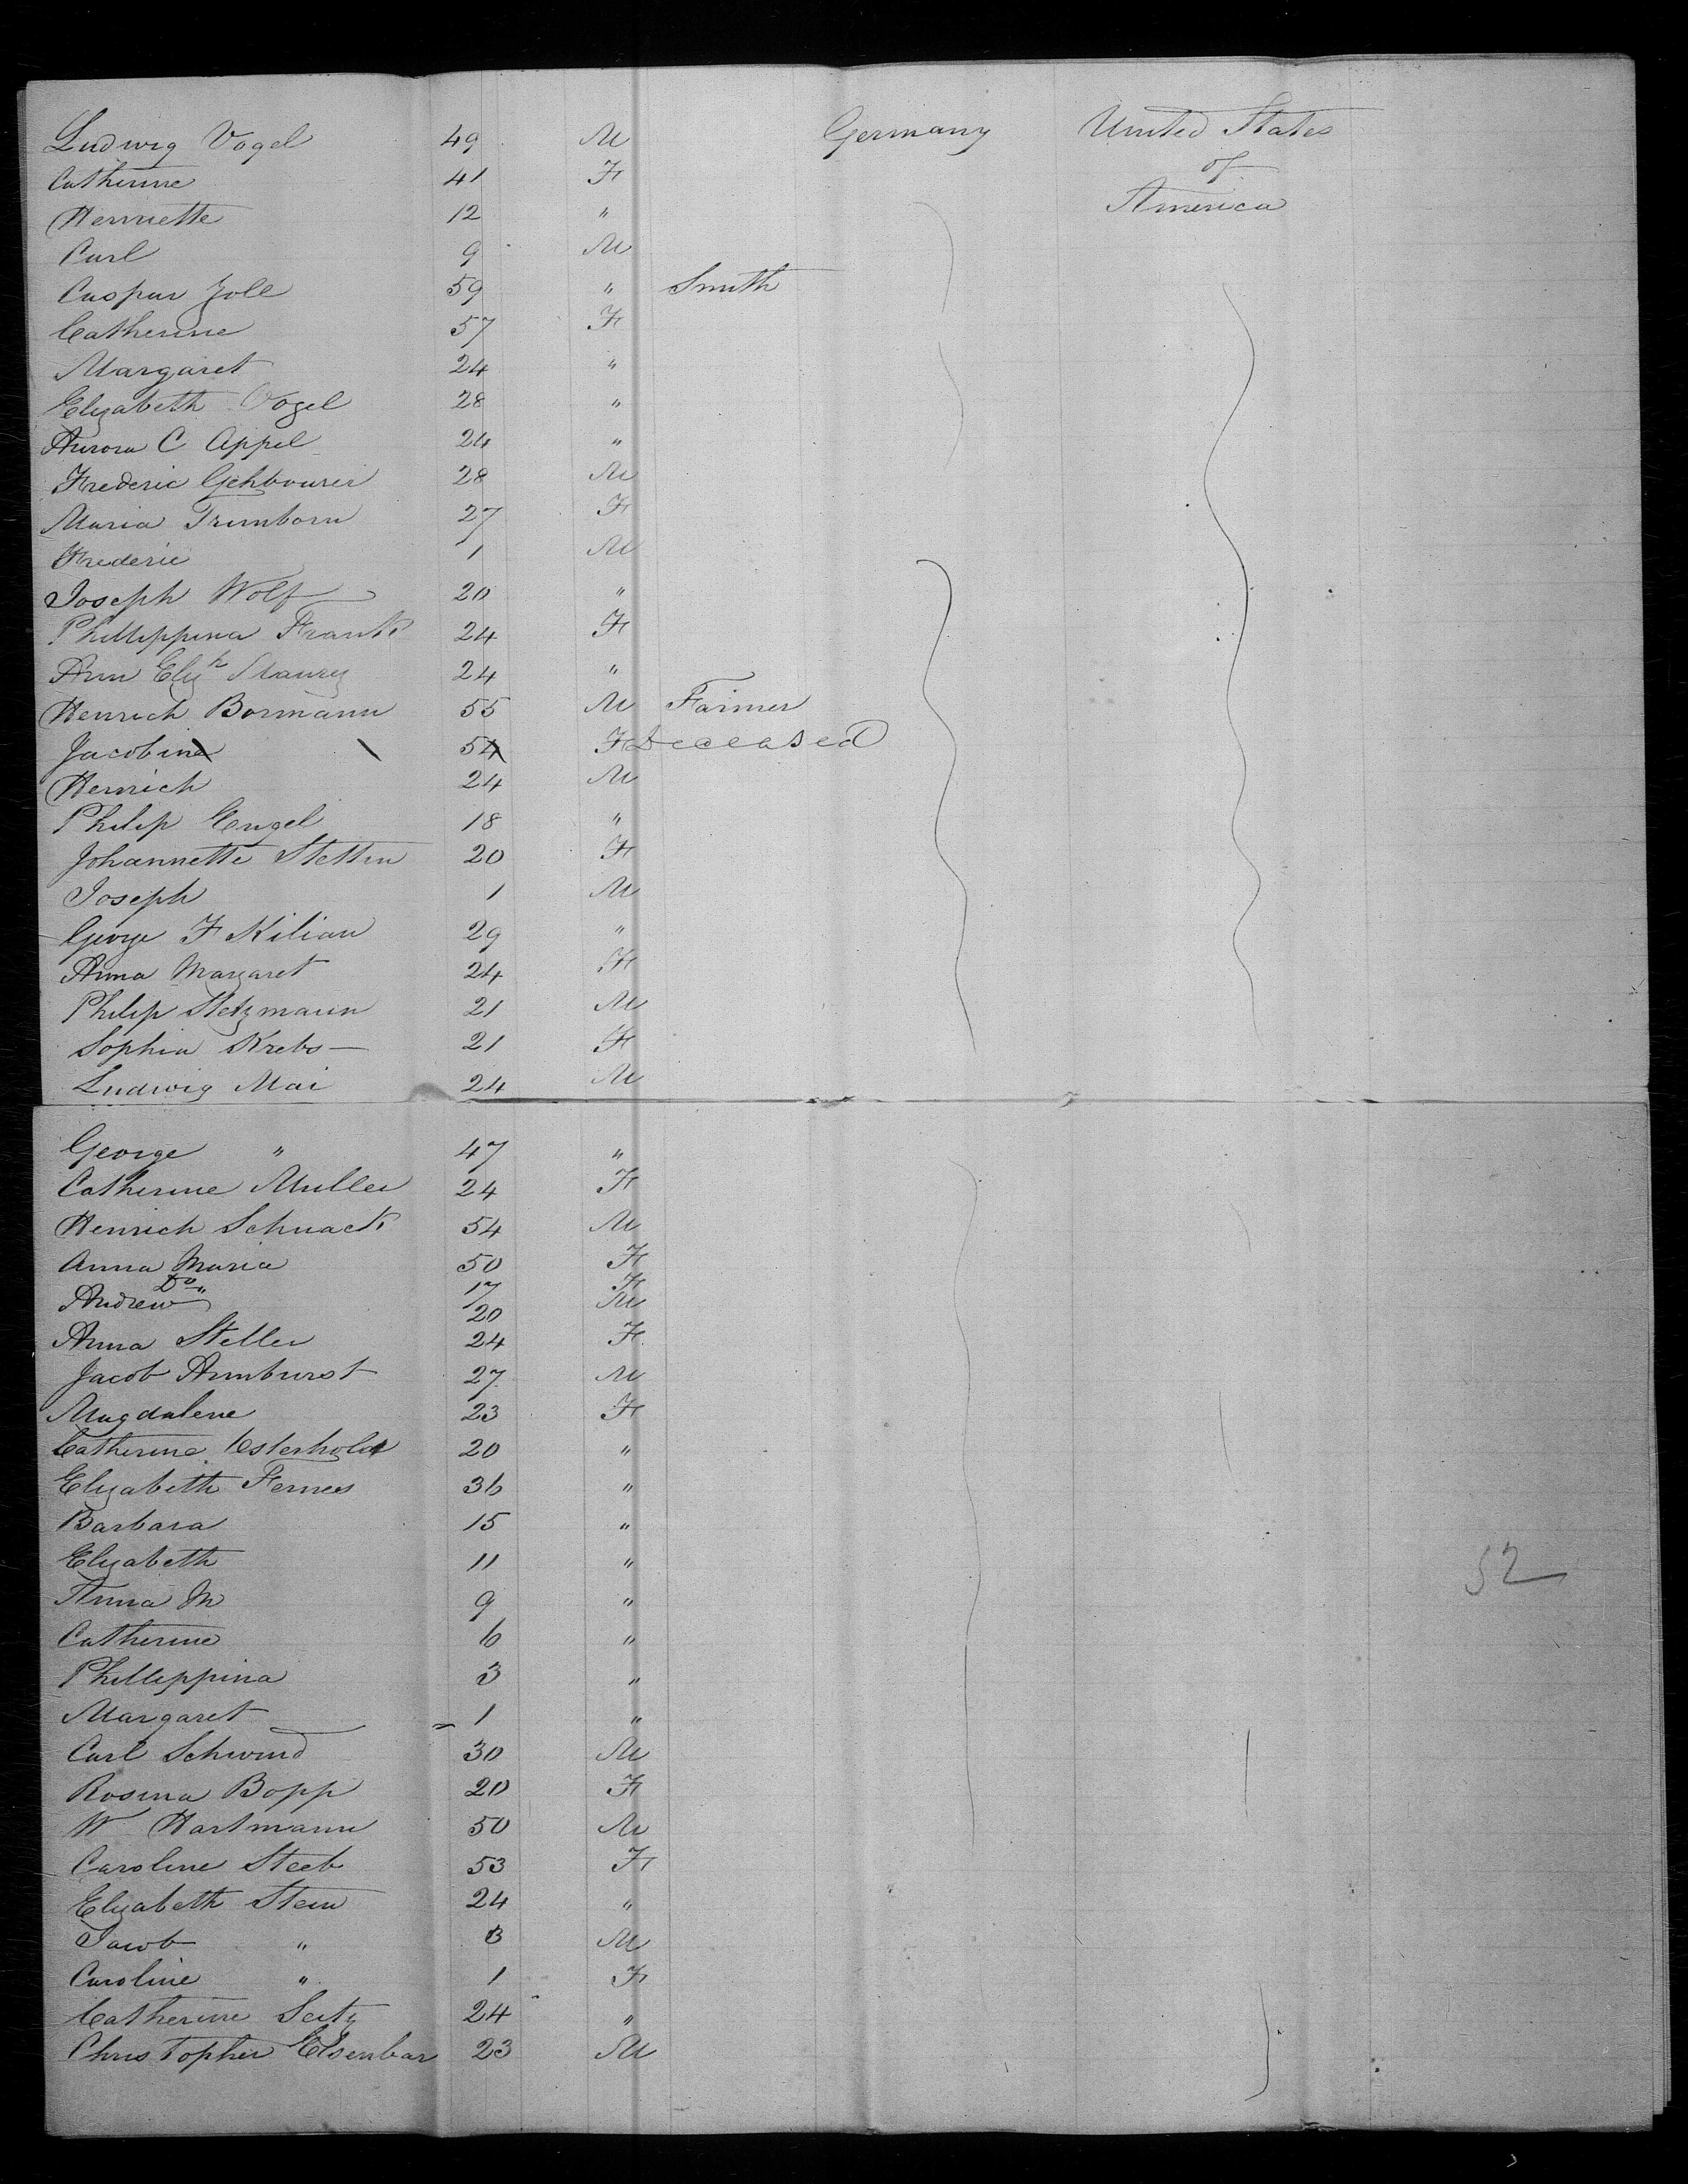 Ludwig Vogel 49 M Germany United States
Catherine 41 F of
Henriette 12 " America
Carl 9 M
Caspar Zoll 59 " Smith
Catherine 57 F
Margaret 24 "
Elizabeth Vogel 28 "
Aurora C Appel 24 "
Frederic Gehbourer 28 M
Maria Trimborn 27 F
Frederic 1 M
Joseph Wolf 20 "
Phillippina Frank 24 F
Ann Elizh 24 "
Henrich Bormann 55 M Farmer
Jacobina 54 F Deceased
Henrich 24 M
Philip Engel 18 "
Johannette Stettin 20 F
Joseph 1 M
George F Kilian 29 "
Anna Margaret 24 F
Philip Stetzmann 21 M
Sophia Krebs — 21 F
Ludwig Mai 24 M
George " 47 "
Catherine Muller 24 F
Henrich Schnack 54 M
Anna Maria 50 F
Do " 17 F
Andrew 20 M
Anna Steller 24 F
Jacob Armburst 27 M
Magdalene 23 F
Catherine Esterhold 20 "
Elizabeth Fernes 36 "
Barbara 15 "
Elizabeth 11 "
Anna M 9 "
Catherine 6 "
Phillippina 3 "
Margaret 1 "
Carl Schwind 30 M
Rosina Bopp 20 F
W Hartmann 50 M
Caroline Steeb 53 F
Elizabeth Stein 24 "
Jacob " 3 M
Caroline " 1 F
Catherine Seitz 24 "
Christopher Elsenbar 23 M
52